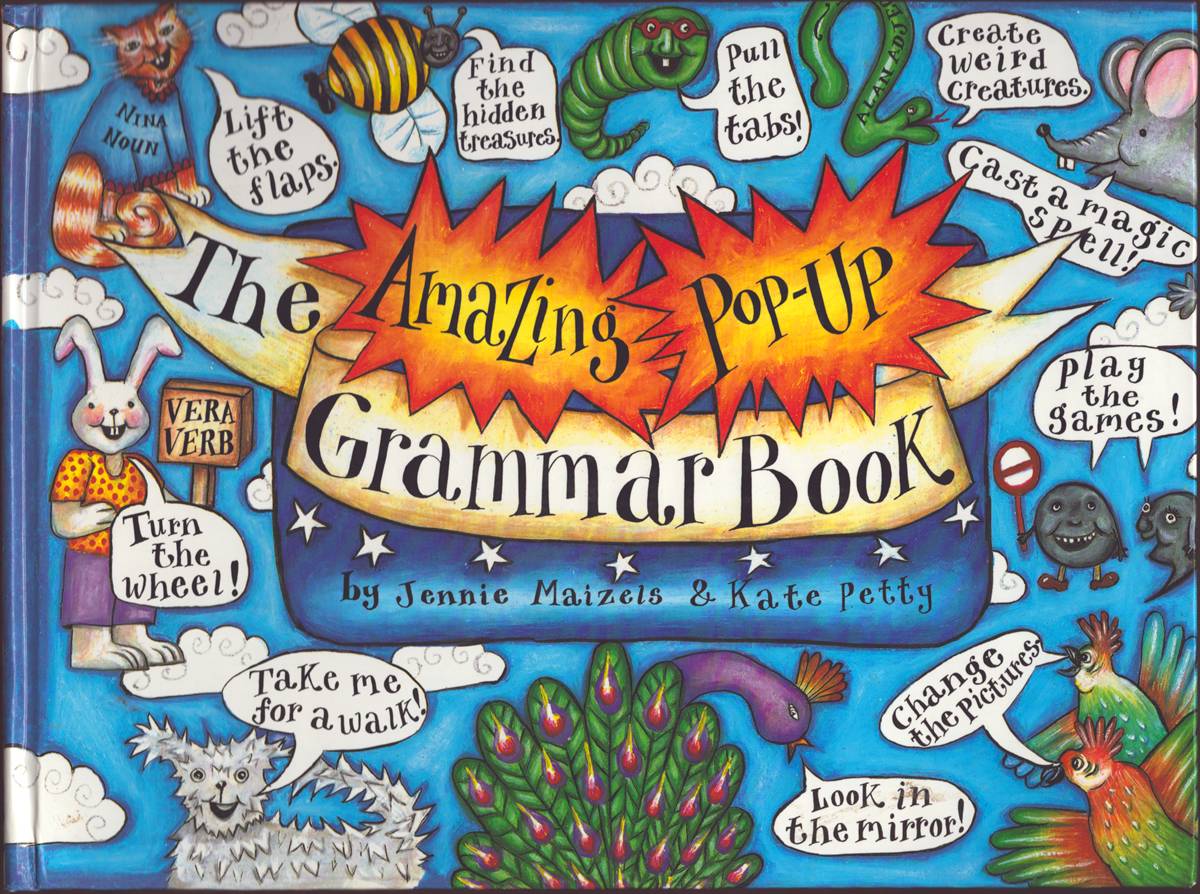 NINA
NOUN
Lift
the
flaps.
Find
the
hidden
treasures.
Pull
the
tabs!
ALAN ADJE
Create
weird
creatures.
Cast a magic
spell!
The Amazing Pop-Up
Grammar Book
by Jennie Maizels & Kate Petty
VERA
VERB
Turn
the
wheel!
play
the
games!
Take me
for a walk!
Change
the pictures.
Look in
the mirror!